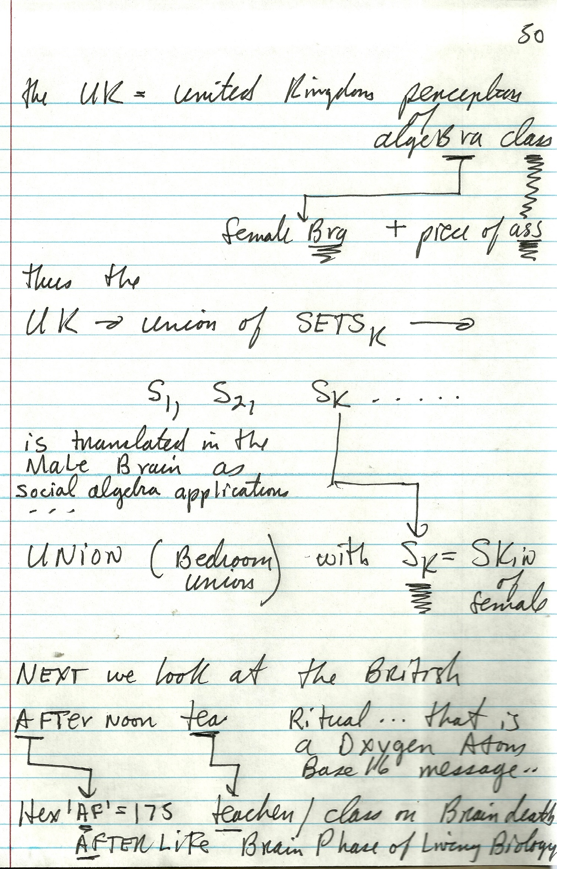 50
the UK = United Kingdom perception
of
algeBra class
female Bra + piece of ass
thus the
UK → union of SETS K →
S1, S2, SK ......
is translated in the
Male Brain as
social algebra applications
...
UNION (Bedroom with SK = SKin
unions) of
female
NEXT we look at the British
AFTer Noon tea Ritual... that is
a Oxygen Atom
Base 16 message..
Hex 'AF' = 175 teacher / class on Brain death
AFTER LIFe Brain Phase of Living Biology